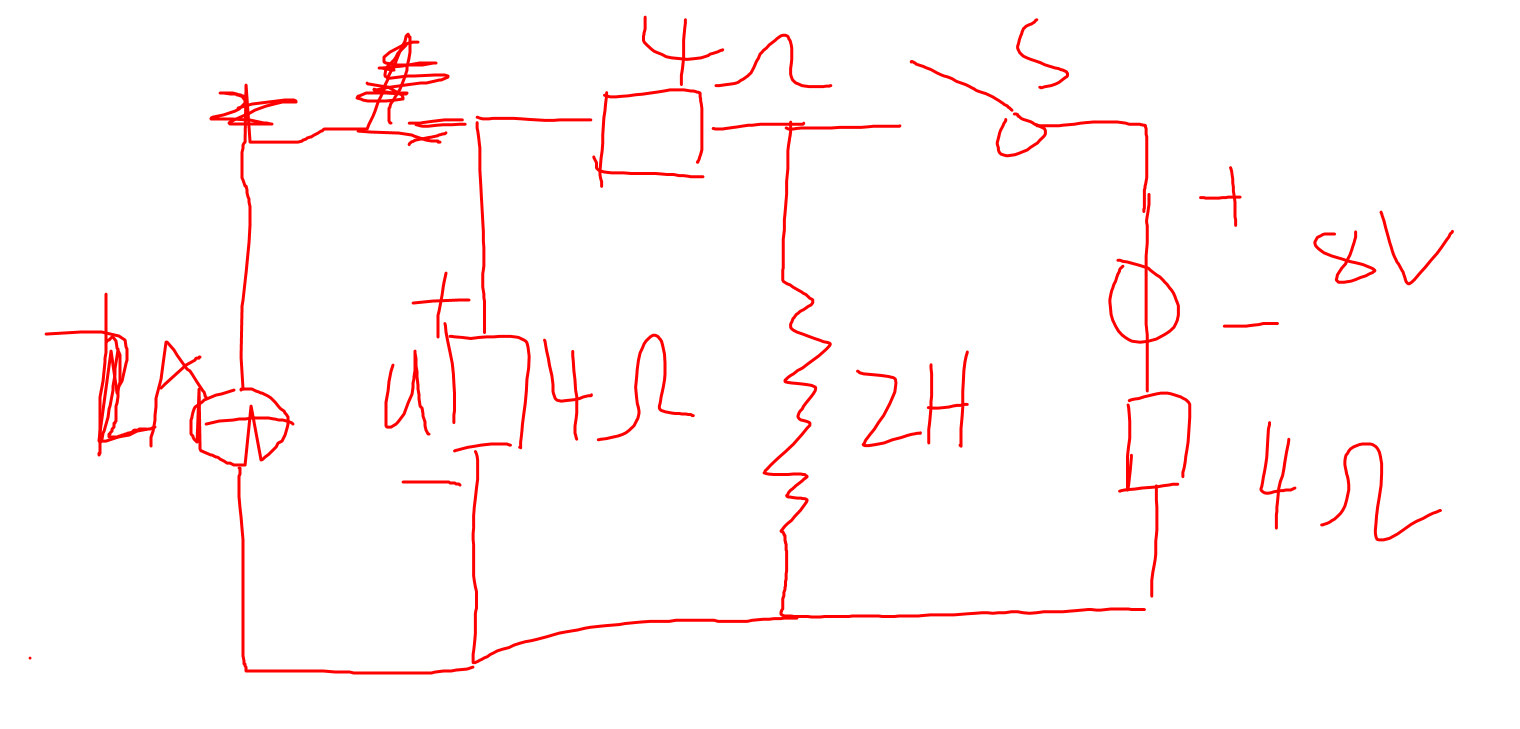 4Ω
S
+
8V
−
A
+
u
−
4Ω
2H
4Ω